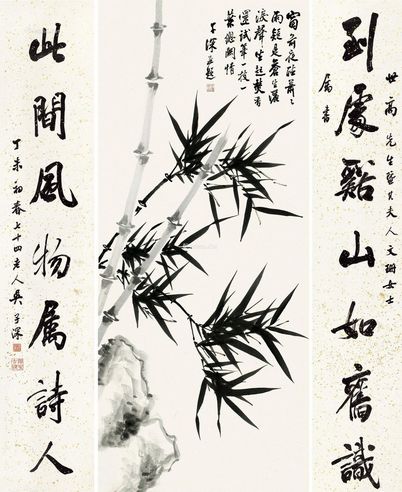 到處谿山如舊識
世高先生暨夫人文珊女士
屬書
窗前夜話蕭〻
雨疑是蒼生滴
淚聲坐起焚香
還試筆一枝一
葉總關情
子深並題
此間風物屬詩人
丁未初春七十四老人吳子深